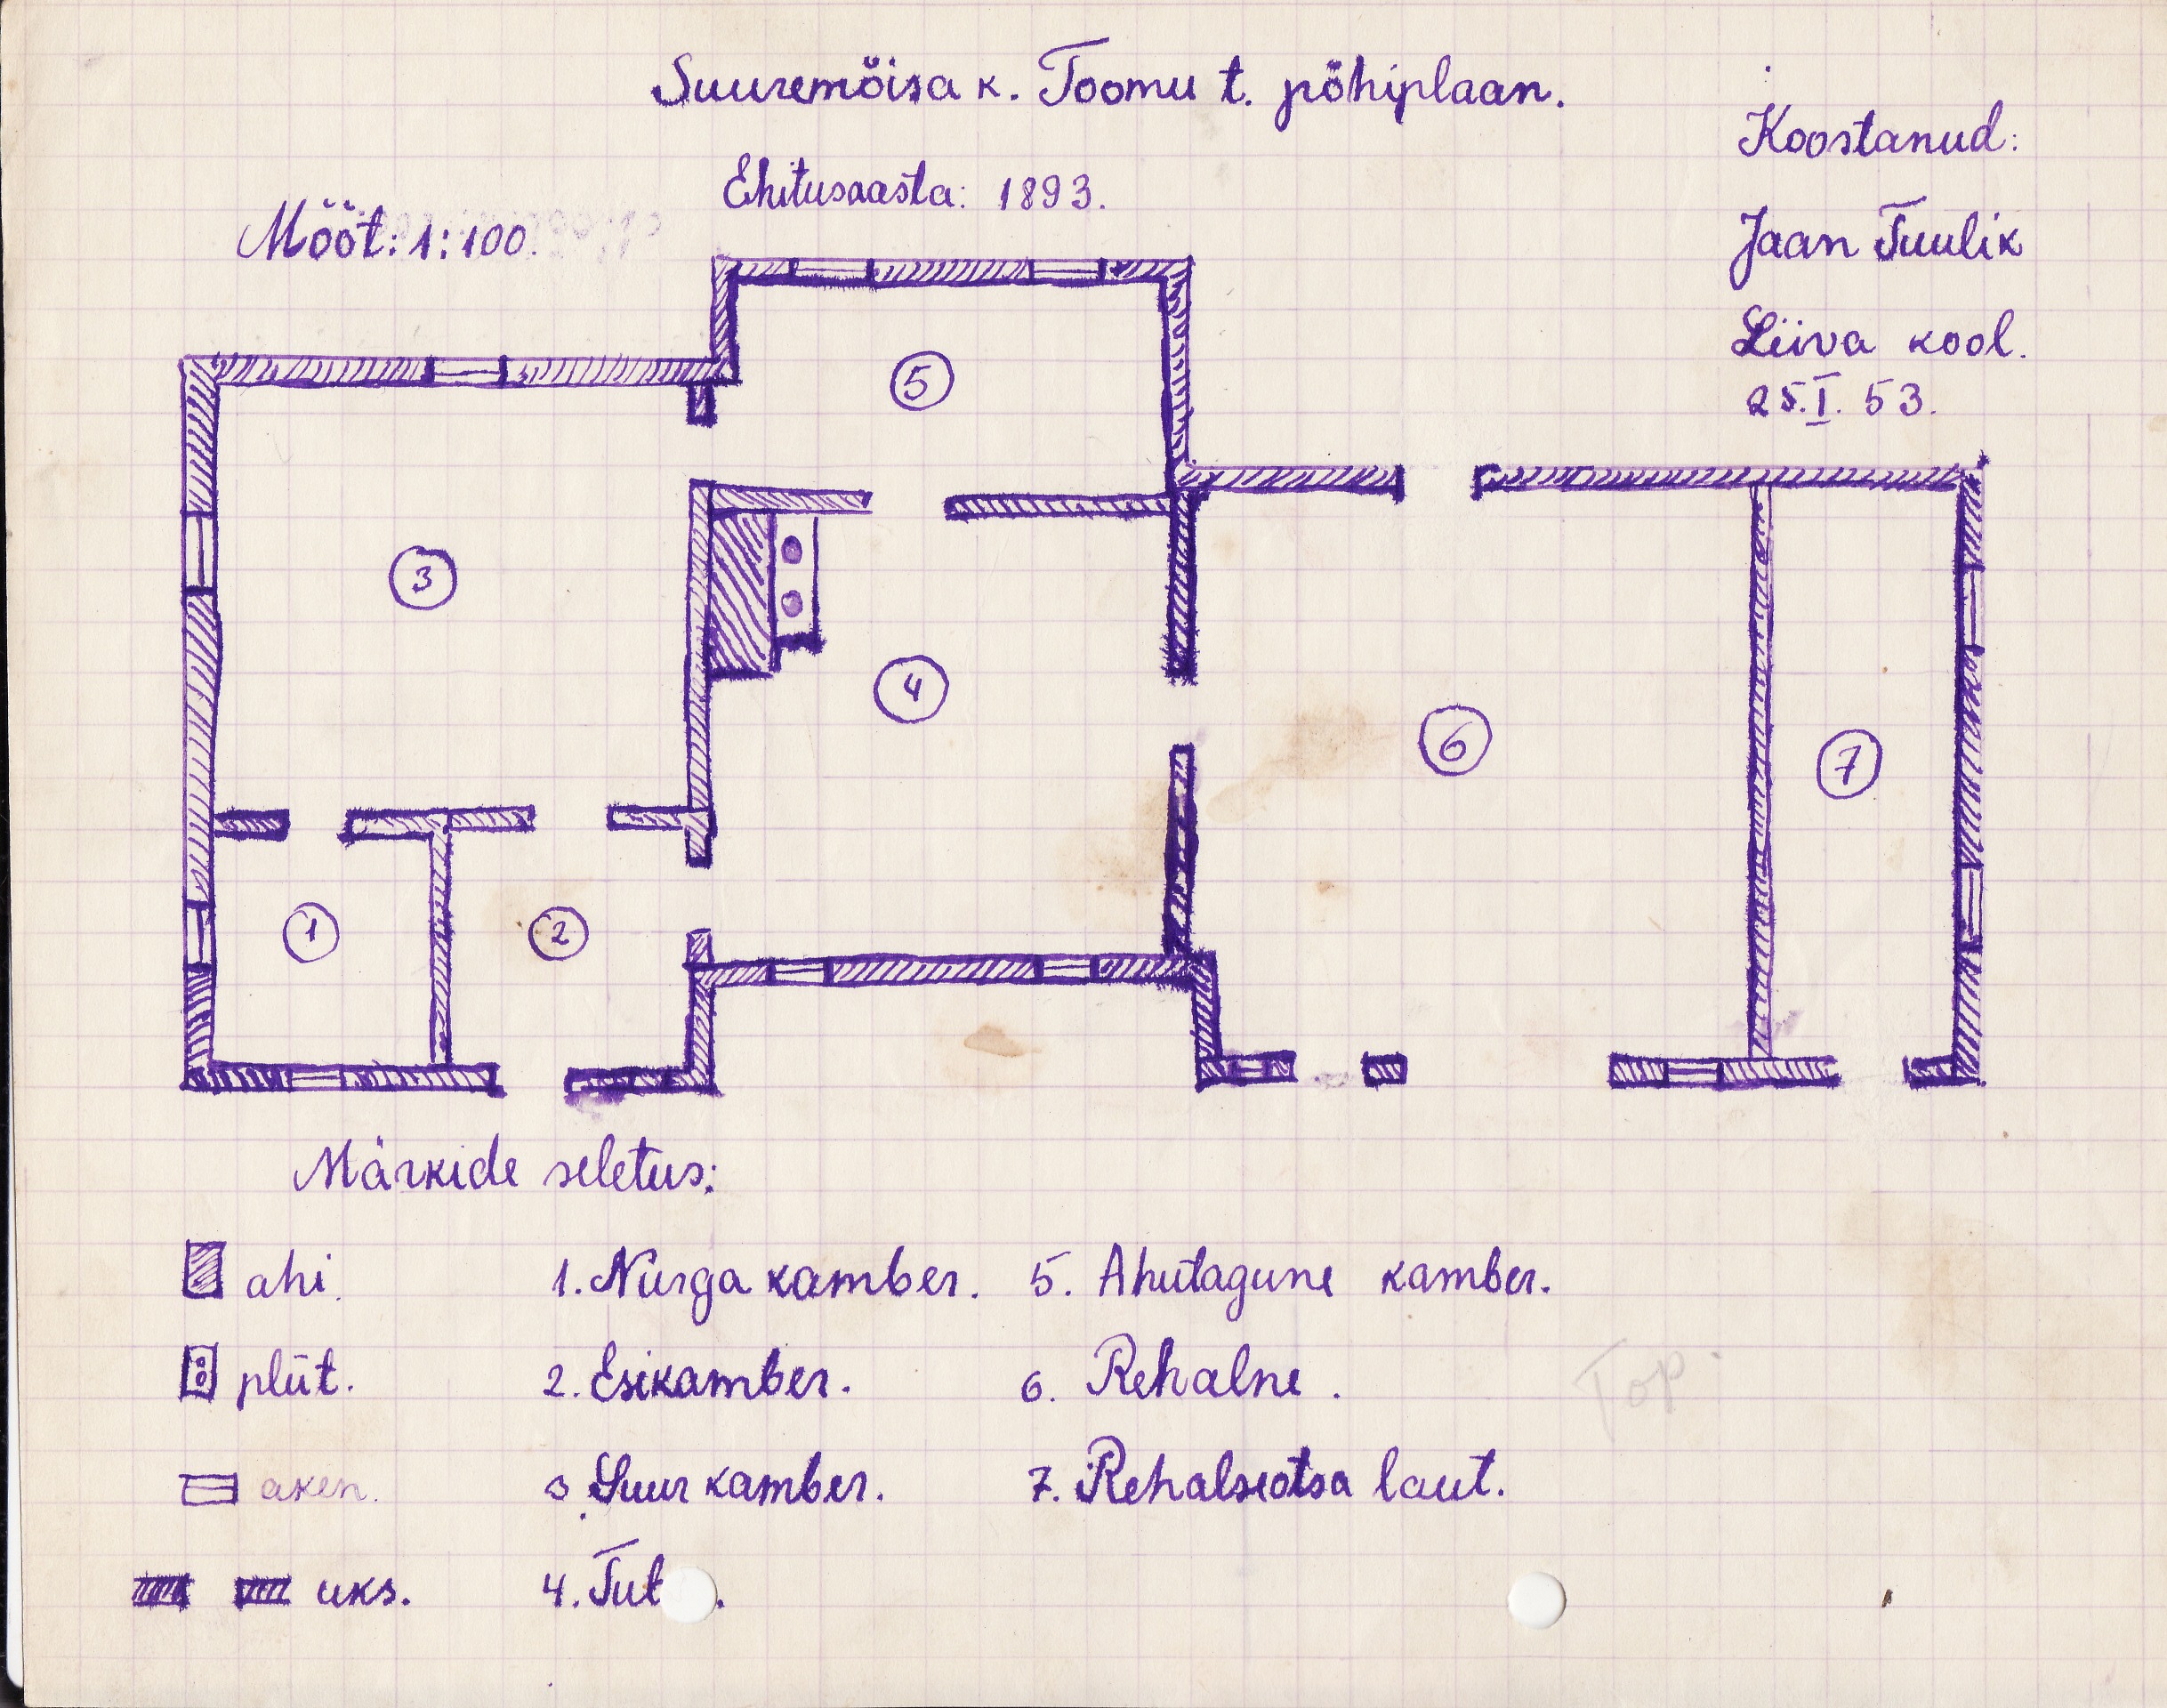 Suuremõisa k. Toomu t. põhiplaan.
Ehitusaasta: 1893.
Mõõt: 1:100.
Koostanud:
Jaan Tuulik
Liiva kool.
25.I. 53.
5
3
4
6
7
1
2
Märkide seletus:
ahi.
pliit.
aken.
uks.
1. Nurga kamber.
2. Esikamber.
3. Suur kamber.
4.
5. Ahutagune kamber.
6. Rehalne.
7. Rehalseotsa laut.
Top.